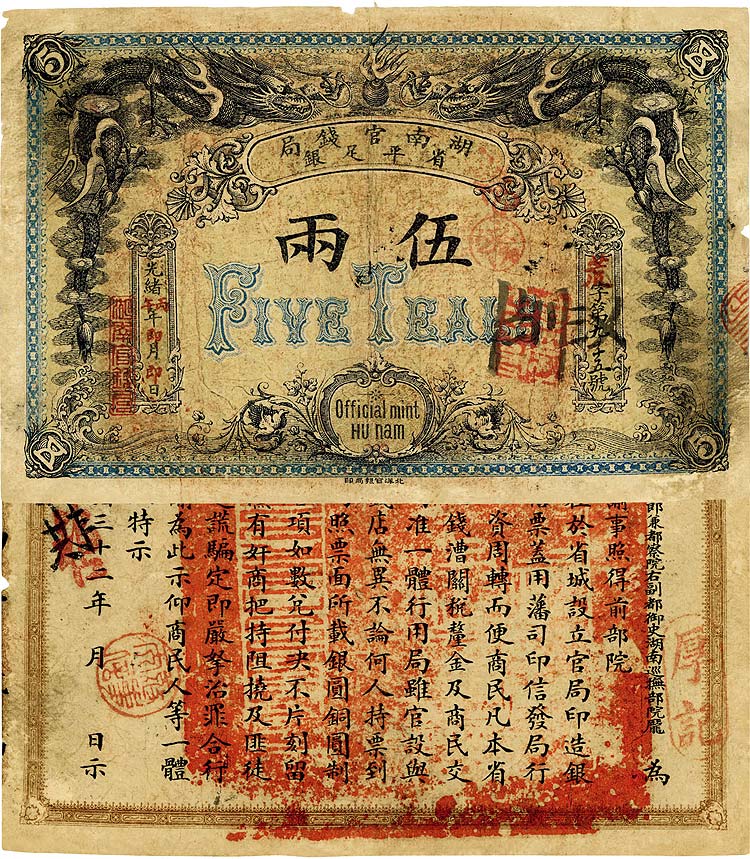 湖南官錢局
省平足銀
伍兩
FIVE TEALS
字第九十五號
光緒丙午年 月 日
Official mint
HU nam
5
5
北洋官報局印
郎兼都察院右副都御史湖南巡撫部院龐 為
事照得前部院
於省城設立官局印造銀
票蓋用藩司印信發局行
資周轉而便商民凡本省
錢漕關稅釐金及商民交
准一體行用局雖官設與
店無異不論何人持票到
照票面所載銀圓銅圓制
項如數兌付決不片刻留
有奸商把持阻撓及匪徒
謊騙定即嚴拏治罪合行
為此示仰商民人等一體
特示
三十二年 月 日示
厚記